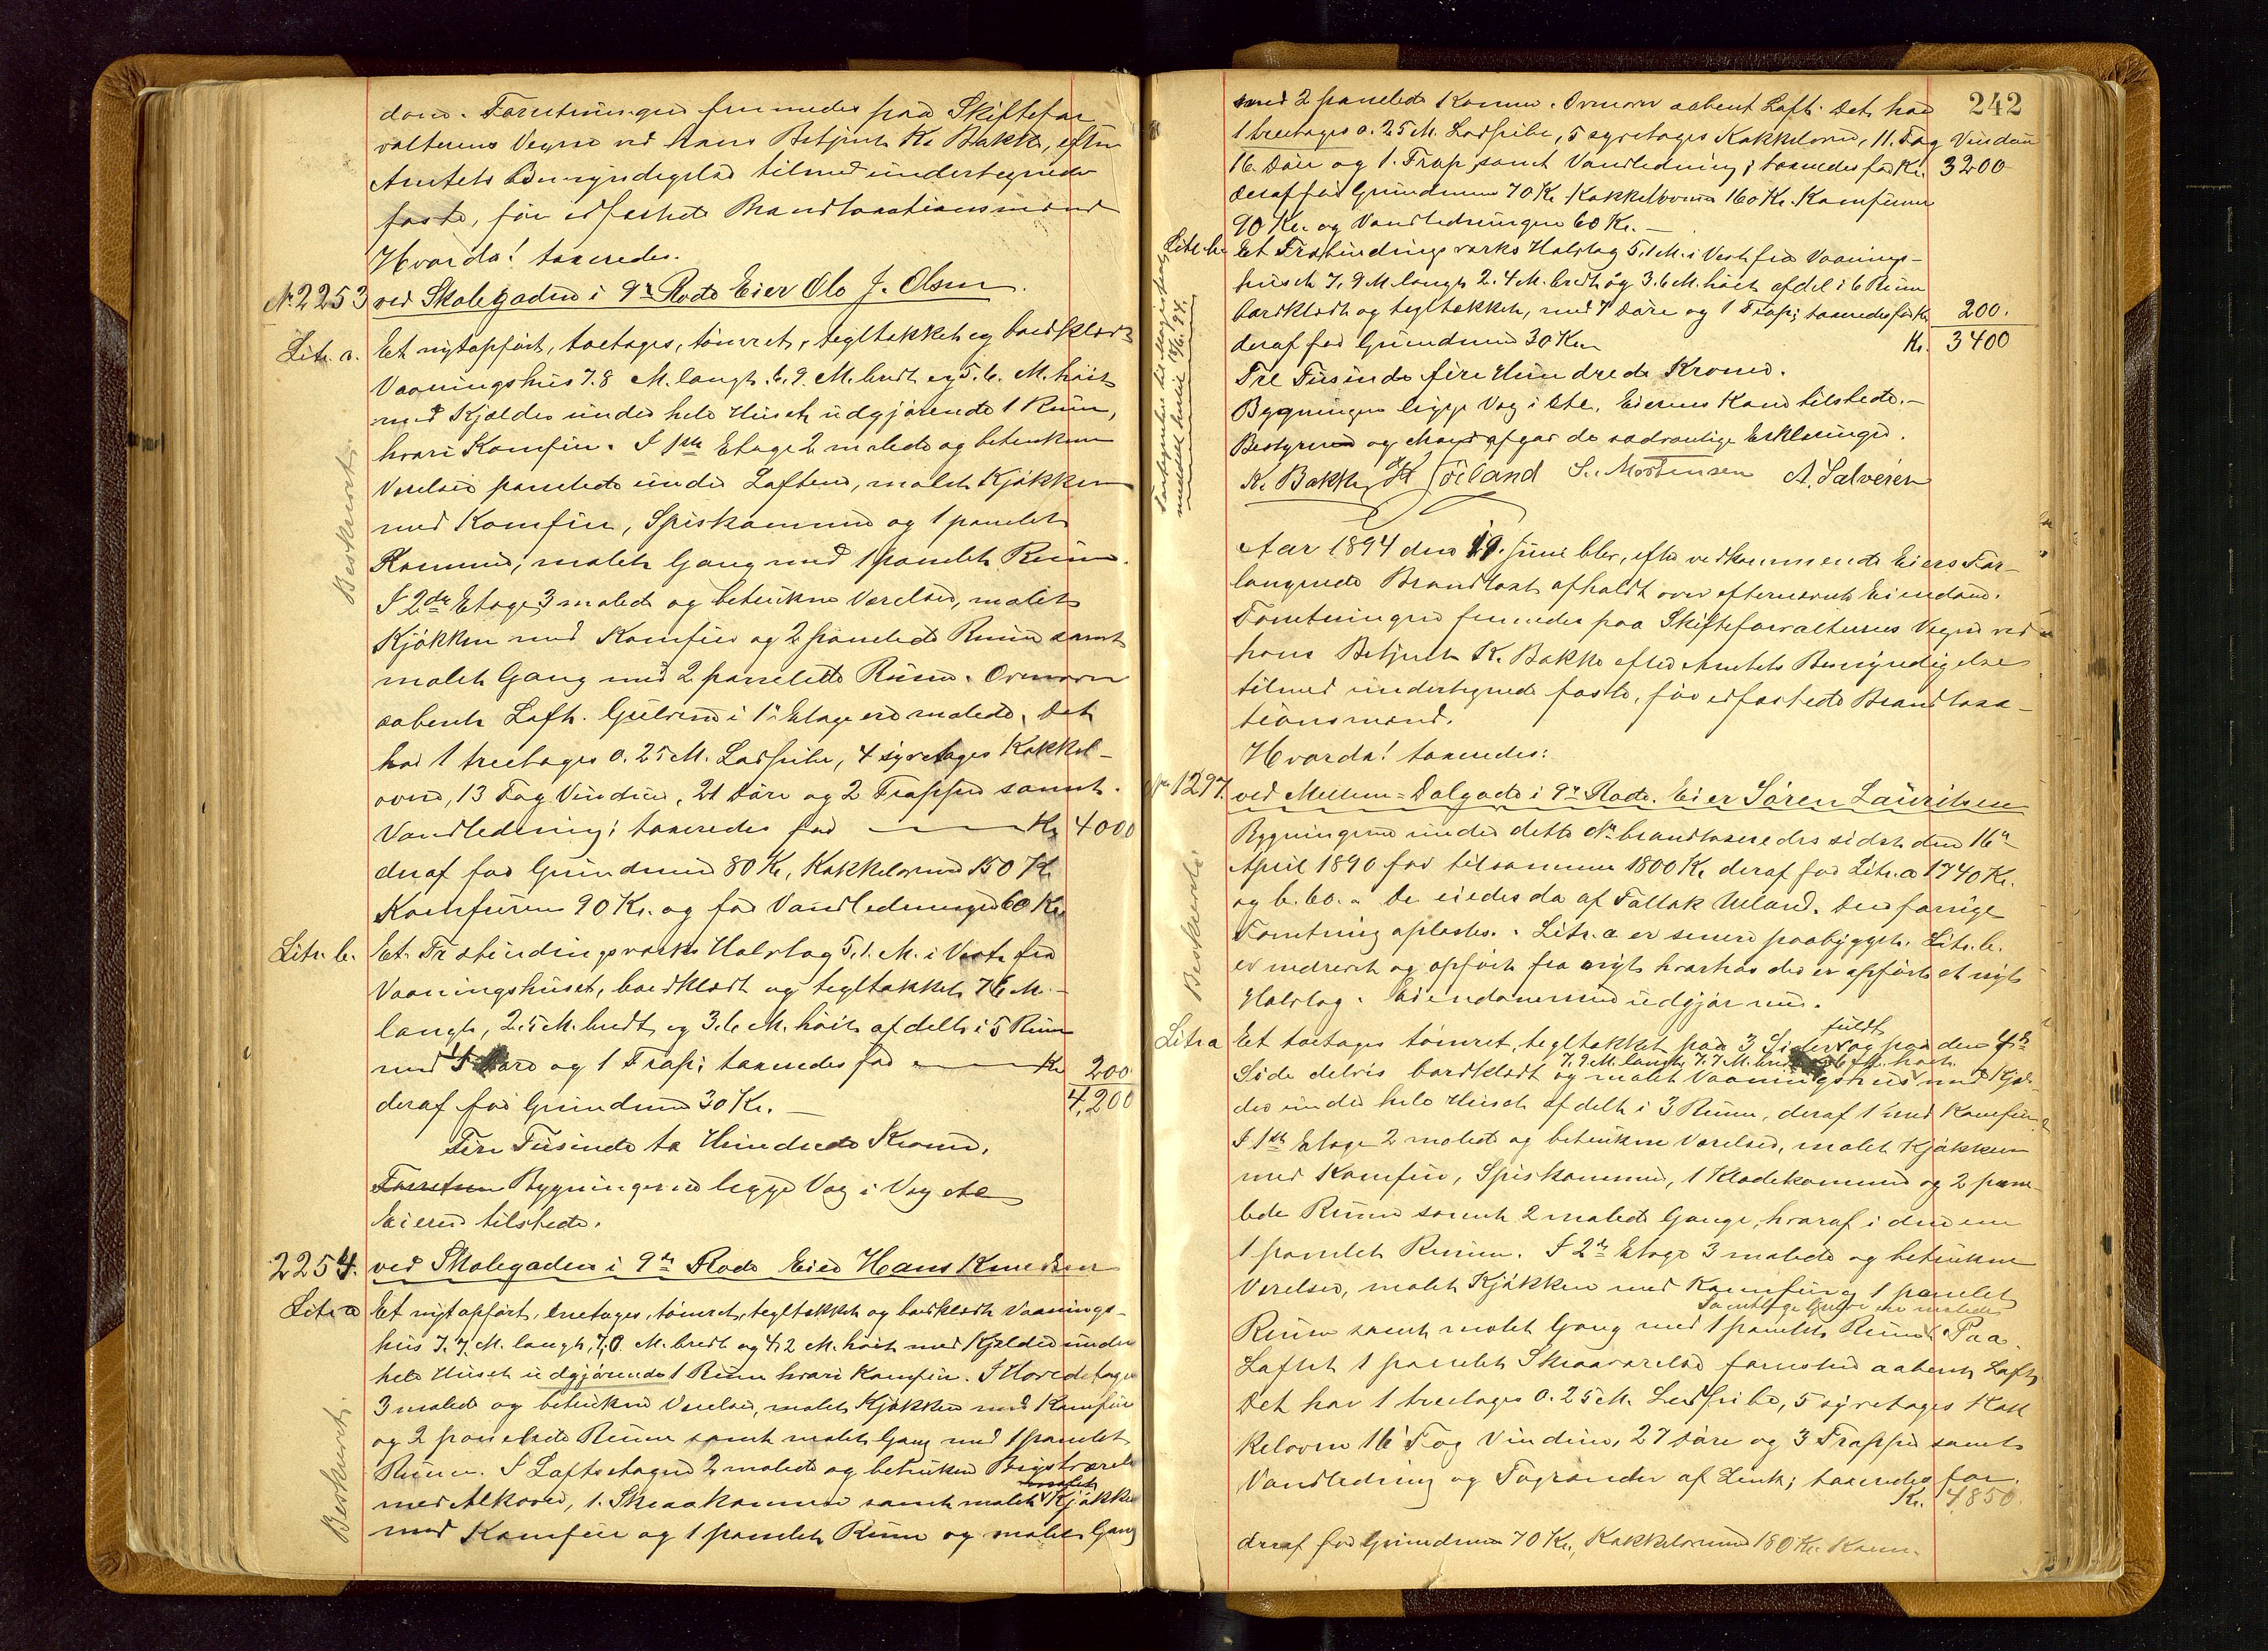 dom. Forretningen fremmedes paa Skiftefor-
valterens Vegne ved hans Betjent K. Bakke, efter
Amtets Bemyndigelse tilmed undertegnede
faste, før edfæstede Brandtaxationsmænd
Hvorda! taxeredes.
No 2253 ved Skolegaden i 9de Rode Eier Ole J. Olsen.
Litr. a. Et nyt opført, toetages, tømret, tegltækket og bordklædt
Vaaningshus 7.8 M. langt 6.9 M. bredt og 5.6. M. høit
med Kjælder under hele Huset udgjørende 1 Rum,
hvori Komfur. I 1ste Etage 2 malede og betrukne
Værelser panelede under Loftene, malet Kjøkken
med Komfur, Spiskammer og 1 panelet
Kammer, malet Gang med 1 panelet Rum.
I 2den Etage 3 malede og betrukne Værelser, malet
Kjøkken med Komfur og 2 panelede Rum samt
malet Gang med 2 panelede Rum. Ovenover
aabent Loft. Gulvene i 1ste Etage ere malede. Det
har 1 treetages 0.25 M. Ladpibe, 4 syretages Kakkel-
ovne, 13 Fag Vinduer, 21 Døre og 2 Trapper samt
Vandledning; taxeredes for Kr. 4000
deraf for Grundmur 80 Kr, Kakkelovne 150 Kr
Komfuren 90 Kr. og for Vandledningen 60 Kr
Litr. b. Et Træbindingsværks Halvtag 5,1. M. i Vest fra
Vaaningshuset, bordklædt og tegltækket 7.6 M.
langt, 2.5 M. bredt og 3.6 M. høit afdelt i 5 Rum
med Døre og 1 Trap; taxeredes for Kr 200
deraf for Grundmur 30 Kr. 4,200
Fire Tusinde to Hundrede Kroner.
Forretnin Bygningerne ligge Væg i Væg
Eieren tilstede.
2254. ved Skolegaden i 9de Rode Eier Hans Knudsen
Litr a Et nyt opført, enetages, tømret, tegltækket og bordklædt Vaanings-
hus 7.7 M. langt, 7,0 M. bredt og 4,2 M. høit med Kjælder under
hele Huset udgjørende 1 Rum hvori Komfur. I Hovedetagen
3 malede og betrukne Værelser, malet Kjøkken med Komfur
og 2 panelede Rum samt malet Gang med 1 panelet
Rum. I Loftsetagen 2 malede og betrukne Bigværelser
med Alkover, 1. Skraakammer samt malet Kjøkken
med Komfur og 1 panelet Rum og malet Gang
Beskuret.
Beskuret.
242
med 2 panelede Kamre. Ovenover aabent Loft. Det har
1 treetages 0.25 M. Ladpibe, 5 syretages Kakkelovne, 11. Fag Vinduer
16. Døre og 1. Trap samt Vandledning; taxeredes for Kr. 3200
deraf for Grundmur 70 Kr. Kakkelovne 160 Kr. Komfuren
90 Kr. og Vandledningen 60 Kr.
Litr. b. Et Træbindingsværks Halvtag 5,1 M. i Vest fra Vaanings-
huset 7,9 M langt 2.4 M. bredt og 3.6 M. høit afdel i 6 Rum
bordklædt og tegltækket, med 7 Døre og 1 Trap; taxeredes for Kr 200.
deraf for Grundmur 30 Kr. Kr. 3400
Tre Tusinde fire Hundrede Kroner.
Bygningen ligge Væg i Eierens Kone tilstede.
Bestyreren og Mænd afgav de sædvanlige Erklæringer.
K. Bakke Foiland S. Mortensen A. Salvesen
Aar 1894 den 19. Juni blev, efter vedkommende Eiers For-
langende Brandtaxt afholdt over efternævnte Eiendom.
Forretningen fremmedes paa Skifteforvalterens Vegne ved
hans Betjent K. Bakke efter Amtets Bemyndigelse
tilmed undertegnede faste, før edfæstede Brandtaxa-
tionsmænd.
Hvorda! taxeredes:
No 1297. ved Mellem-Dalgade i 9de Rode. Eier Søren Lauritsen
Bygningerne under dette No brandtaxeredes sidst den 16de
April 1890 for tilsammen 1800 Kr. deraf for Litr. a 1740 Kr.
og b. 60. De eiedes da af Tallak Ueland. Den forrige
Forretning oplæstes. Litr. a er senere paabygget. Litr. b.
er nedrevet og opført fra nyt hvorhos der er opført et nyt
Halvtag. Eiendommene udgjør nu.
Litr a Et toetages tømret, tegltækket paa 3 Sider fuldt og paa den 4de
Side delvis bordklædt og malet Vaaningshus 7.9 M. langt, 7.7 M. bredt høit med Kjæl-
der under hele Huset afdelt i 3 Rum, deraf 1 med Komfur.
I 1ste Etage 2 malede og betrukne Værelser, malet Kjøkken
med Komfur, Spiskammer, 1 Klædekammer og 2 pane-
lede Rum samt 2 malede Gange, hvoraf i den ene
1 panelet Rum. I 2den Etage 3 malede og betrukne
Værelser, malet Kjøkken med Komfur og 1 panelet
Rum samt malet Gang med 1 panelet Rum. Samtlige Gulve ere malede Paa
Loftet 1 panelet Skraaværelse forresten aabent Loft.
Det har 1 treetages 0.25 M. Ladpibe, 5 syretages Kak
kelovne 16 Fag Vinduer, 27 Døre og 3 Trapper samt
Vandledning og Tagrender af Zink; taxeredes for
Kr. 4850.
deraf for Grundmur 70 Kr., Kakkelovne 180 Kr. Kom-
Beskuret.